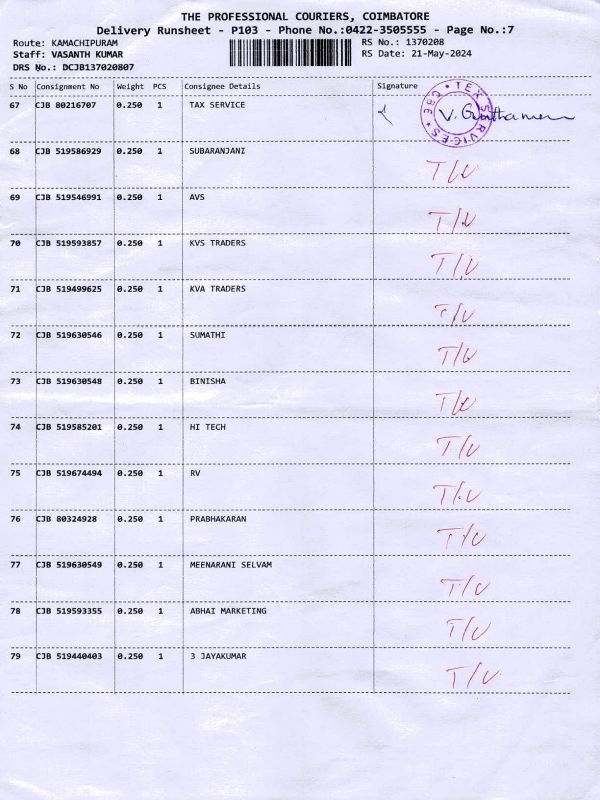 THE PROFESSIONAL COURIERS, COIMBATORE
Delivery Runsheet - P103 - Phone No.:0422-3505555 - Page No.:7
Route: KAMACHIPURAM RS No.: 1370208
Staff: VASANTH KUMAR RS Date: 21-May-2024
DRS No.: DCJB137020807
S No Consignment No Weight PCS Consignee Details Signature
67 CJB 80216707 0.250 1 TAX SERVICE
68 CJB 519586929 0.250 1 SUBARANJANI T/U
69 CJB 519546991 0.250 1 AVS T/U
70 CJB 519593857 0.250 1 KVS TRADERS T/U
71 CJB 519499625 0.250 1 KVA TRADERS T/U
72 CJB 519630546 0.250 1 SUMATHI T/U
73 CJB 519630548 0.250 1 BINISHA T/U
74 CJB 519585201 0.250 1 HI TECH T/U
75 CJB 519674494 0.250 1 RV T/U
76 CJB 80324928 0.250 1 PRABHAKARAN T/U
77 CJB 519630549 0.250 1 MEENARANI SELVAM T/U
78 CJB 519593355 0.250 1 ABHAI MARKETING T/U
79 CJB 519440403 0.250 1 3 JAYAKUMAR T/U